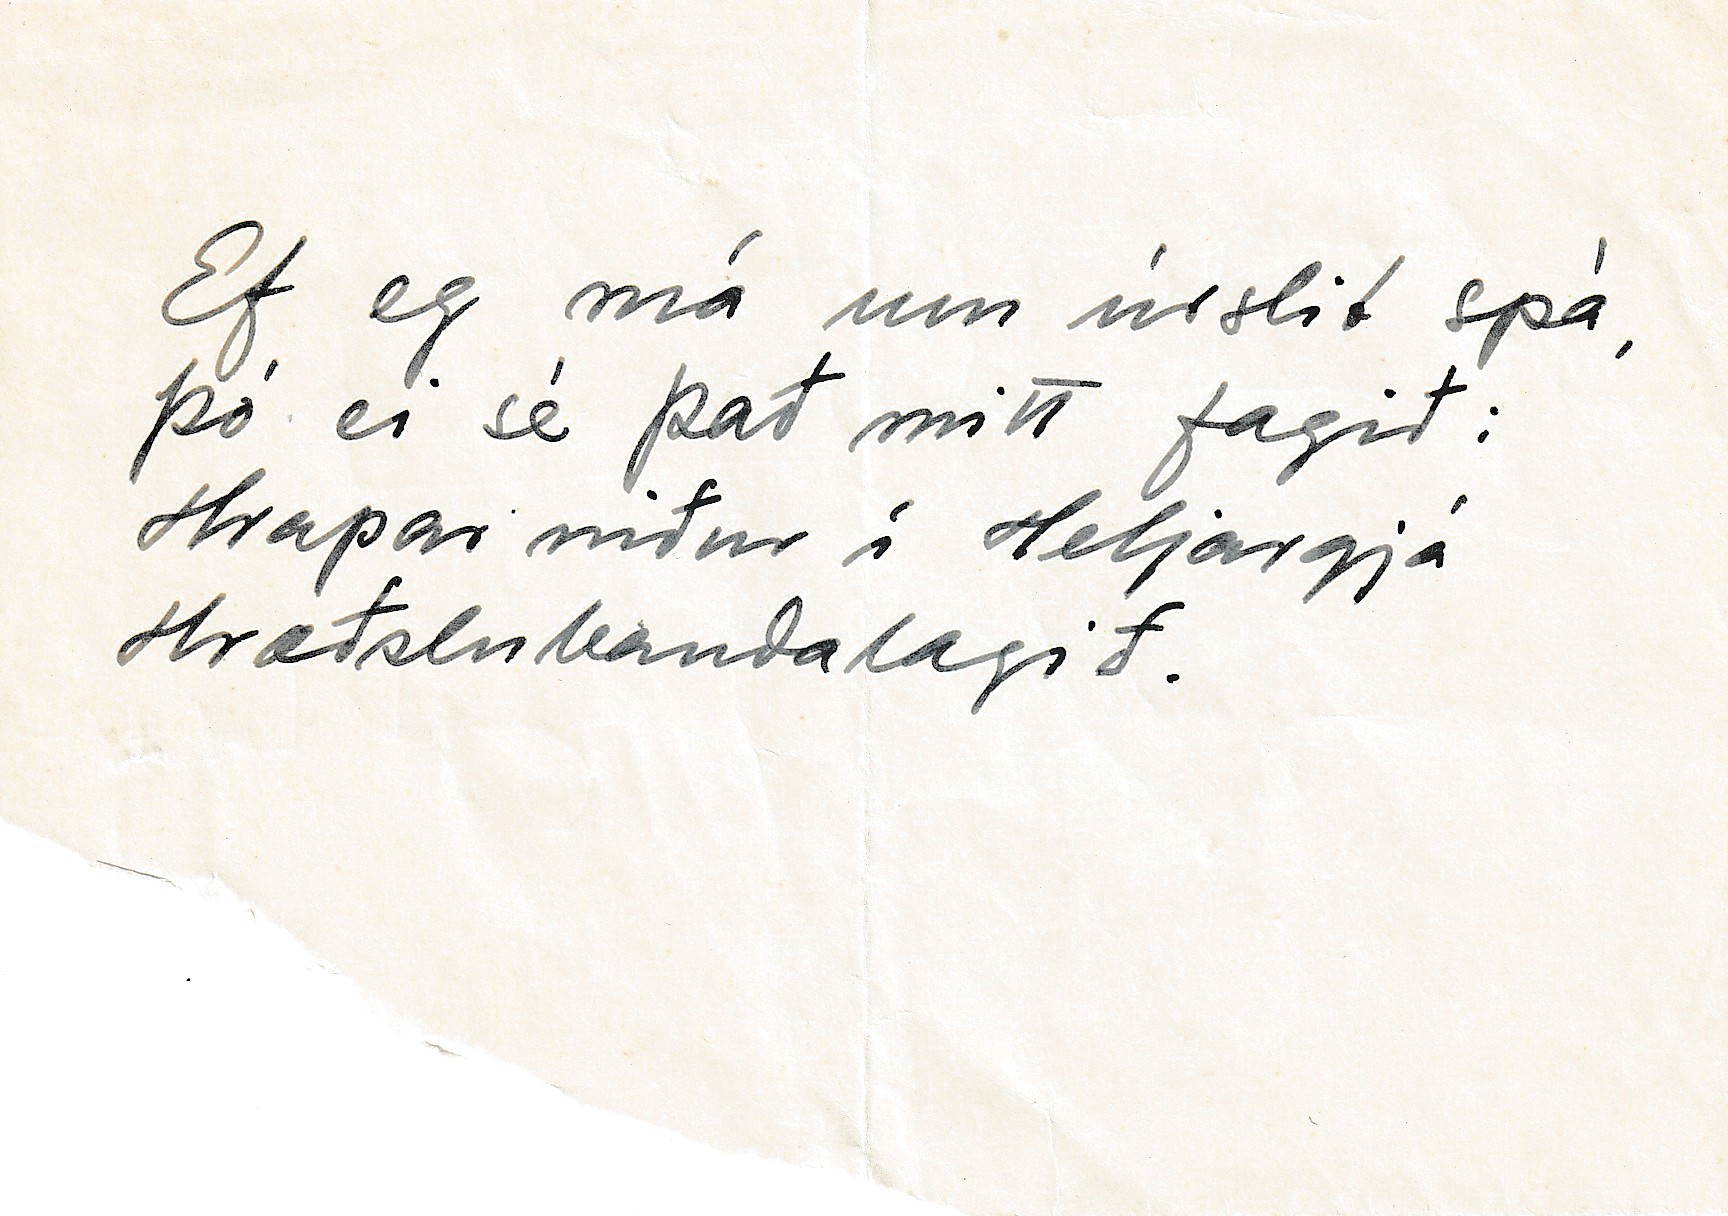 Ef eg má um úrslit spá,
þó ei sé það mitt fagið:
Hrapar niður í Heljargjá
Hræðslubandalagið.